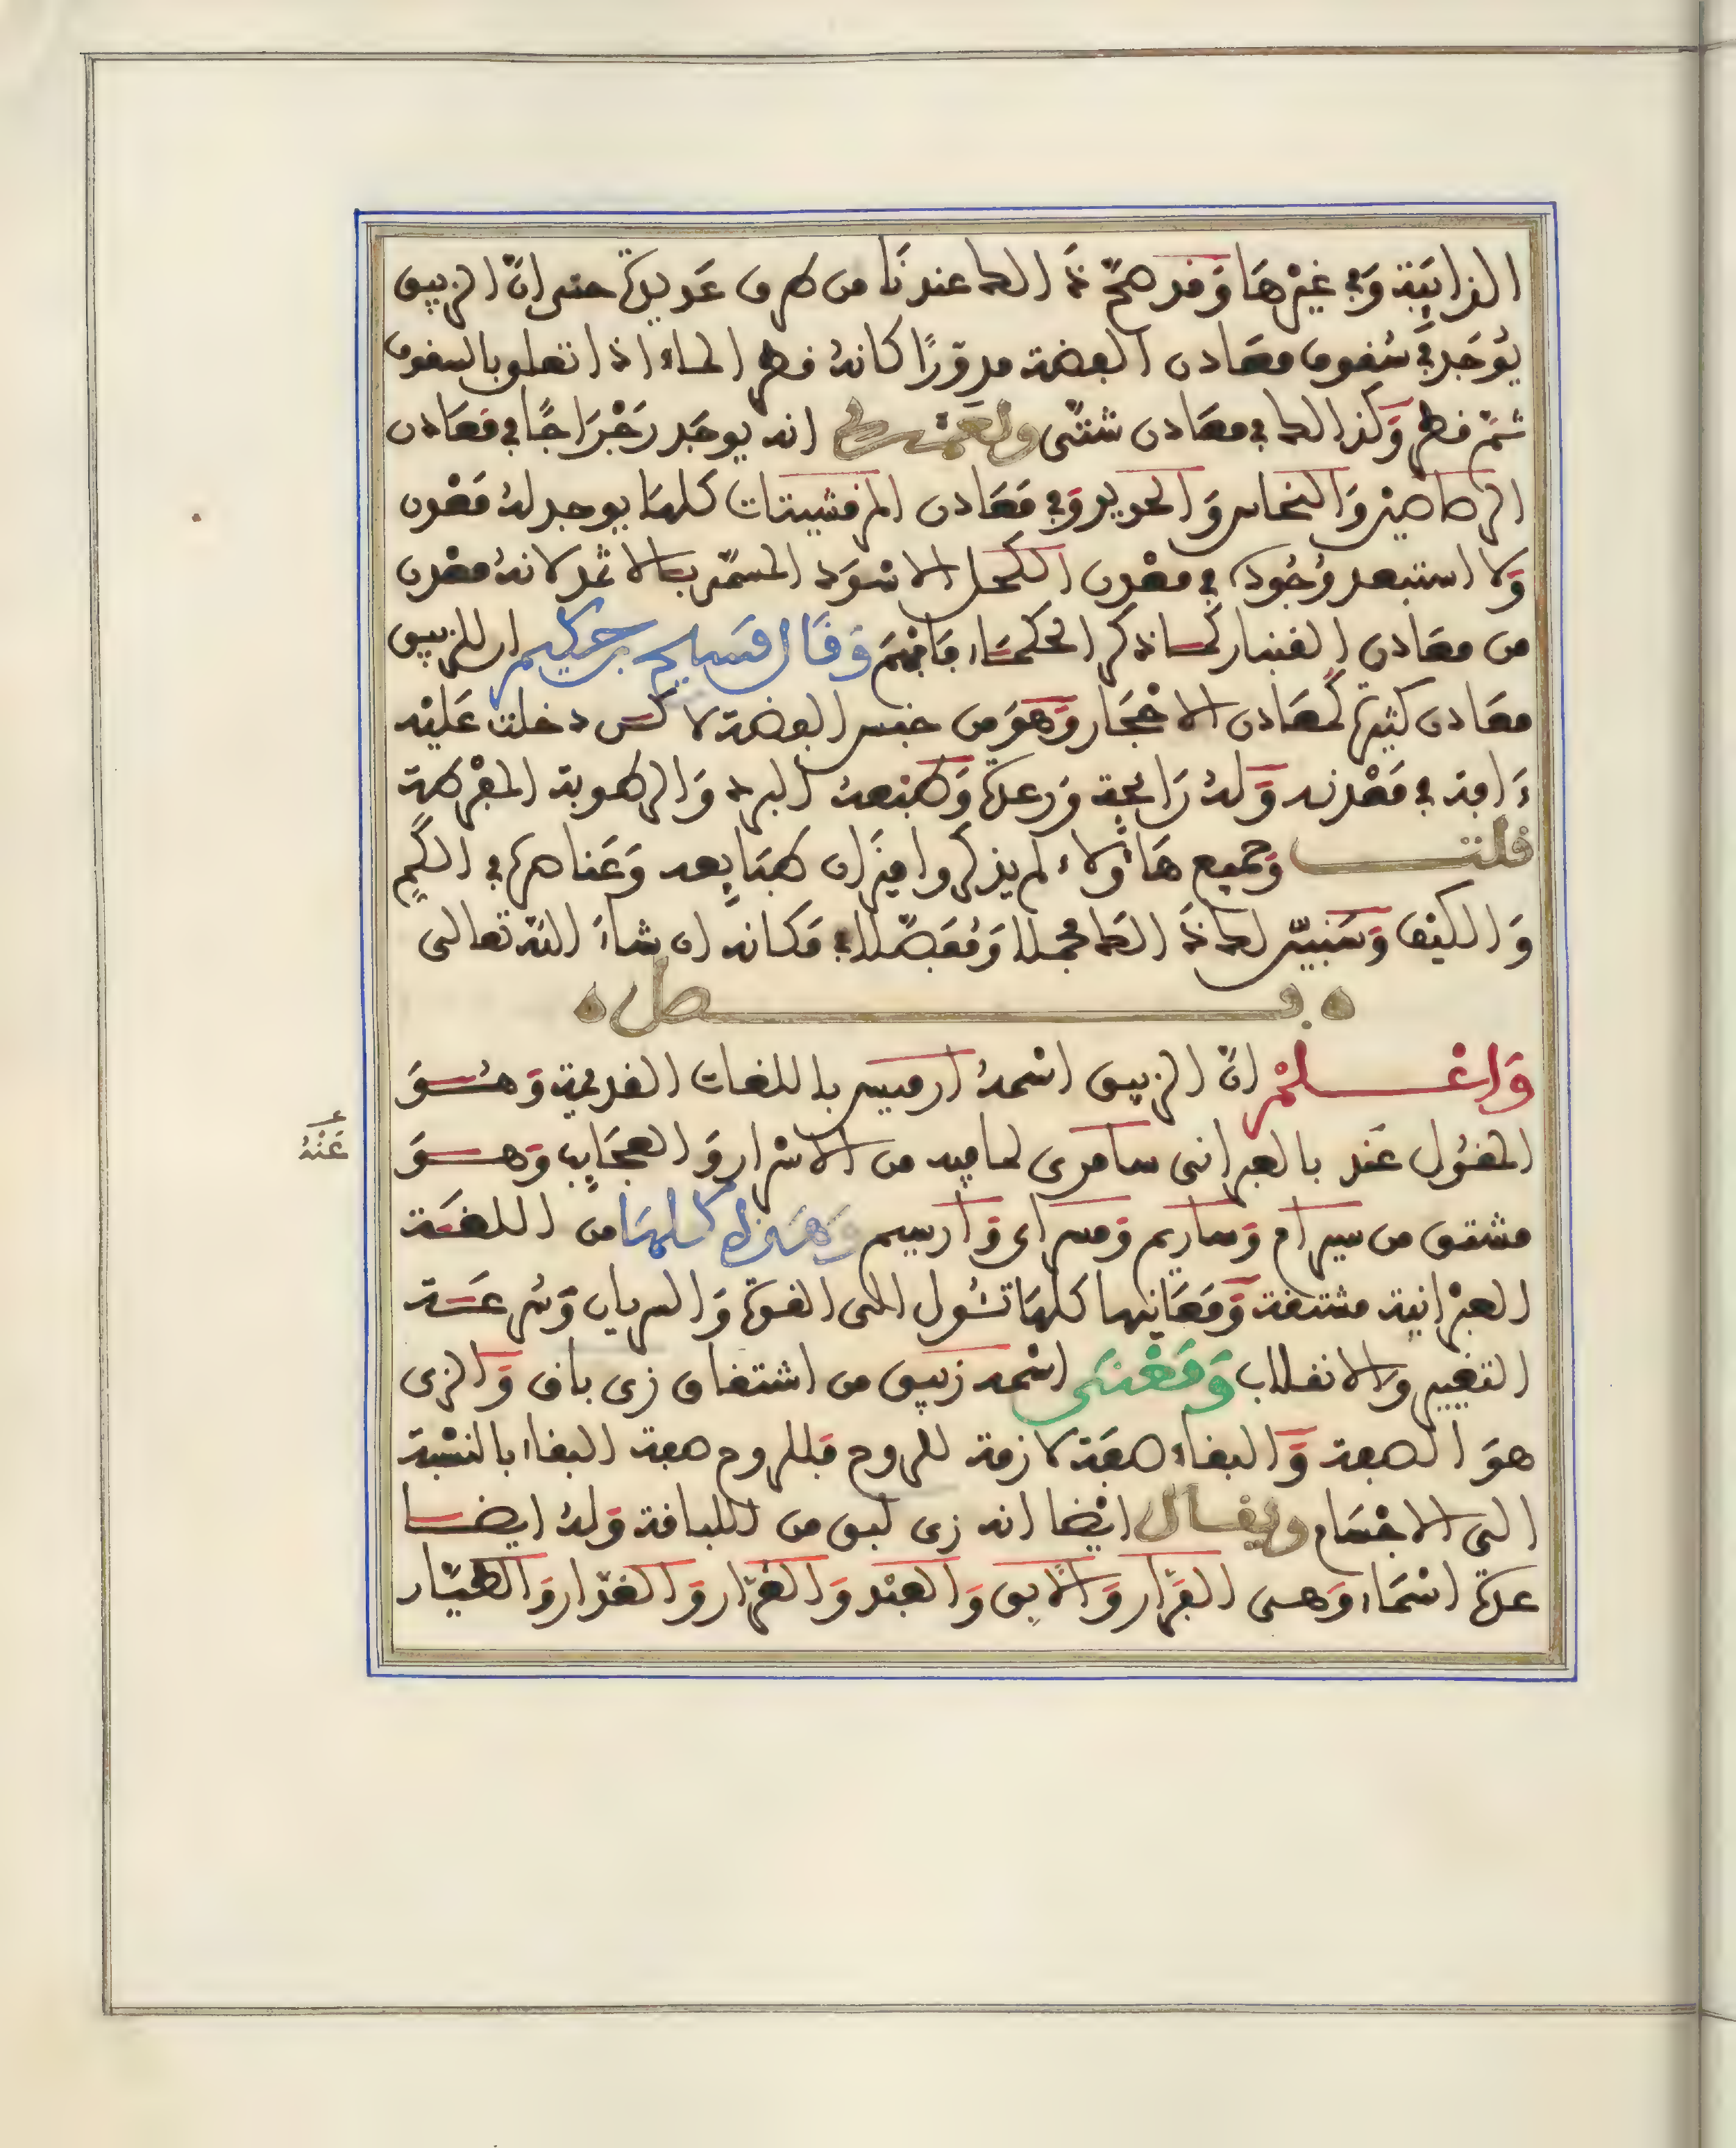 الذائبة وَفي غيْرهَا وَقد صَحَّ ذَٰلك عندنَا من طرق عَديدة حتى انّ الزيبق
يُوجَد في سُقوف معَادن الفضة مدوّرًا كانهُ قطر الماء اذا تعلو بالسقوف
ثمّ قطر وَكذالك في معَادن شتّى انه يوجَد رَجْرَاجًا في مَعَادن
الرصاصيْن وَالنحاس وَالحديد وَفي مَعَادن المرقشيتات كلهَا يوجد لهُ مَعْدن
وَلا استبعد وُجُوده في معْدن الكحل الاسْوَد المسمّى بالاثمد لانهُ معْدن
من معَادن القنبار كما ذكر الحكمَاء فافهَم وَقَال مَسيح بن حكيم ان للزيبق
معَادن كثيرة كمعَادن الاحْجَار وَهوَ من جنس الفضة لاكن دخلت عَليْه
ءَافة في مَعْدنه وَلهُ رَائحة وَرعدة وَطبْعهُ البرد وَالرطوبة المفْرطة
قلت وَجميع هَاؤُلاء لم يذكروا ميزَان طبَايعه وَعَناصره في الكَم
وَالكيْف وَسَنبيّن لك ذَٰلك مجملا وَمُفَصّلا في مَكانه ان شاءَ اللّه تعالى
فصل
وَاعْلمْ انّ الزيبق اسْمهُ ارميس باللغات القديمة وَهُوَ
المقُول عَنه بالعبرانى سامرى لما فيه من الاسْرار وَالعجَايب وَهوَ
عَنْهُ
مشتق من سيرام وَساريم وَمسراى وَارسيم وَهَذه كلهَا من اللغَة
العبْرانية مشتقة وَمَعَانيها كلهَا تَئُول الى القوة وَالسريان وَسُرعَة
التغيير وَالانقلاب وَمَعْنَى اسْمه زيبق من اشتقاق زى باق وَالزى
هوَ الصفة وَالبقاء صفَة لازمة للروح فللروح صفة البقاء بالنسْبة
الى الاجْسَام وَيقال ايْضا انه زى لبق من اللباقة وَلهُ ايضا
عدة اسْمَاء وَهى الفرَّار وَالآبق وَالعبْد وَالغرّار وَالغدّار وَالطيّار